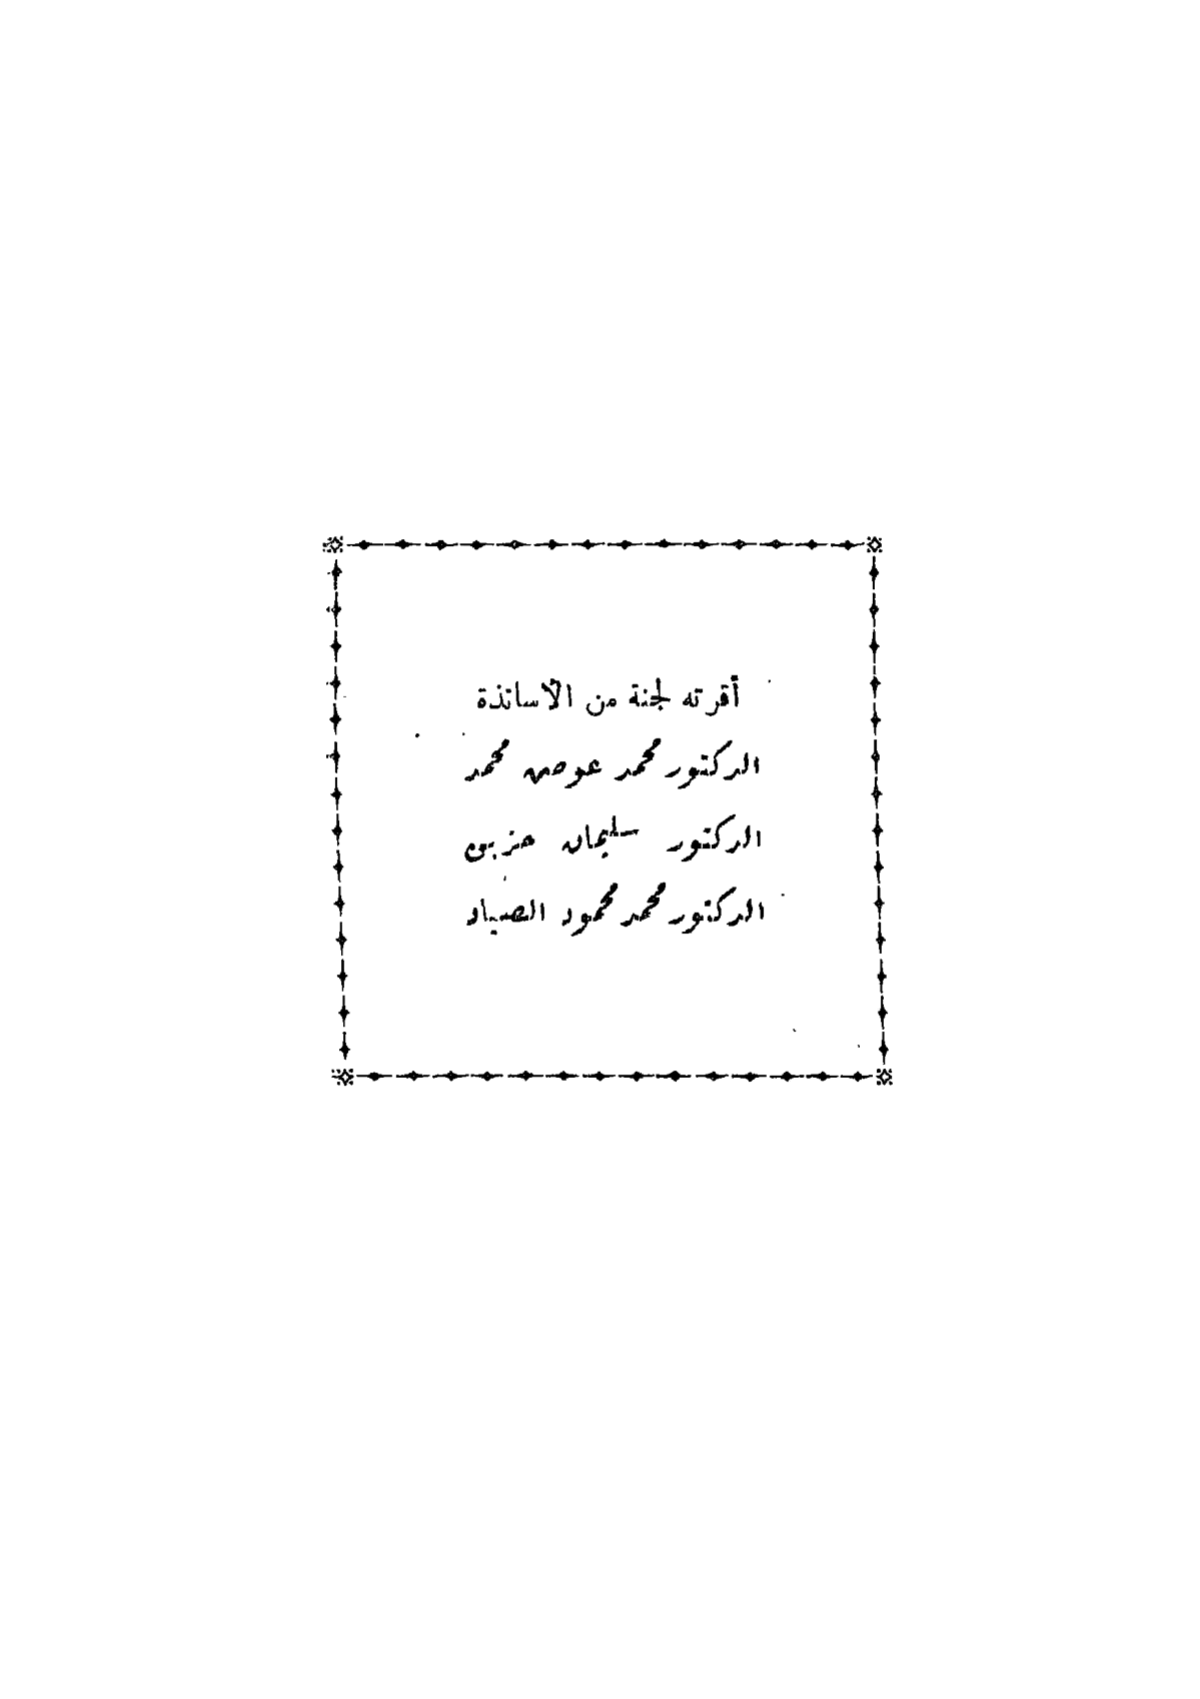 أقرته لجنة من الأساتذة
الدكتور محمد عوض محمد
الدكتور سليمان حزين
الدكتور محمد محمود الصياد